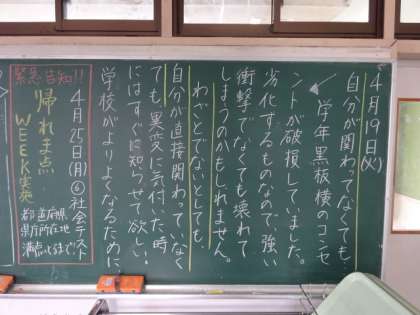 4月19日(火)
自分が関わってなくても…
学年黒板横のコンセ
ントが破損していました。
劣化するものなので、強い
衝撃でなくても壊れて
しまうのかもしれません。
わざとでないとしても、
自分が直接関わっていなく
ても異変に気付いた時
にはすぐに知らせて欲しい。
学校がよりよくなるために
緊急告知!!
4月25日(月)⑥社会テスト
帰れま点
WEEK実施
都道府県
県庁所在地
満点とるまで